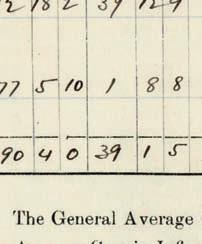 12 18 2 39 12 9
77 5 10 1 8 8
90 4 0 39 1 5
The General Average